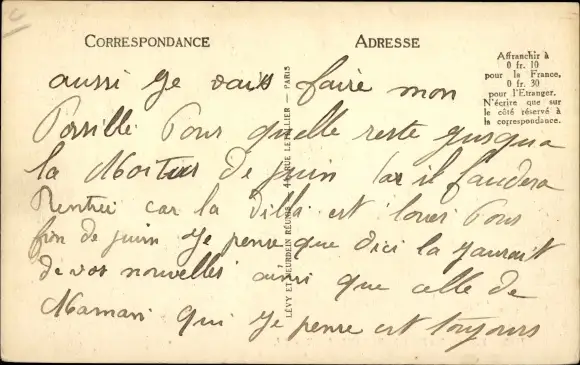 CORRESPONDANCE
ADRESSE
Affranchir à
0 fr. 10
pour la France,
0 fr. 30
pour l'Etranger.
N'écrire que sur
le côté réservé à
la correspondance.
LÉVY ET NEURDEIN RÉUNIS 44, RUE LETELLIER — PARIS
aussi je vais faire mon
Possille Pour quelle reste jusqua
la de juin Car il faudera
Rentrée car la Villa est louer Pour
fin de juin Je pense que dici la jaurait
de vos nouvelles ainsi que celle de
Maman qui je pense est toujours